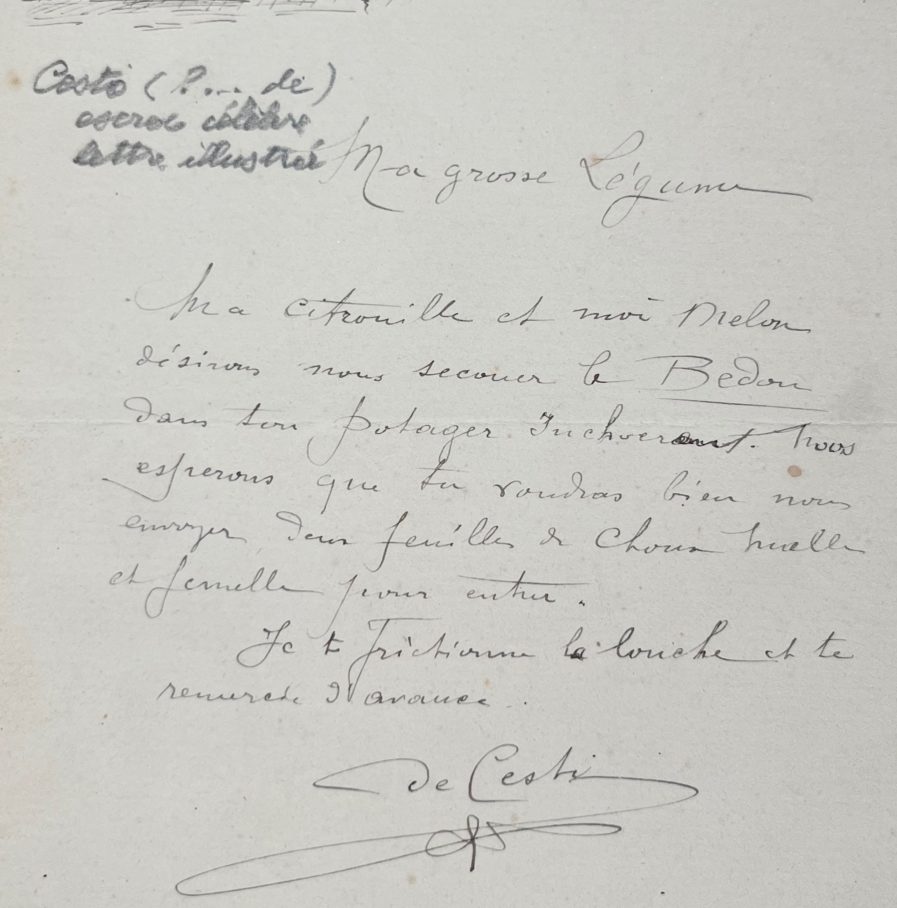 Costi (?... de)
escroc célèbre
lettre illustrée
Ma grosse Légume
Ma citrouille et moi Melon
désirons nous secouer le Bedon
dans ton potager Incherent. Nous
esperons que tu voudras bien nous
envoyer deux feuilles de Choux mâlle
et femelle pour entrer.
Je te frictionne la louche et te
remercie d'avance.
de Cesti